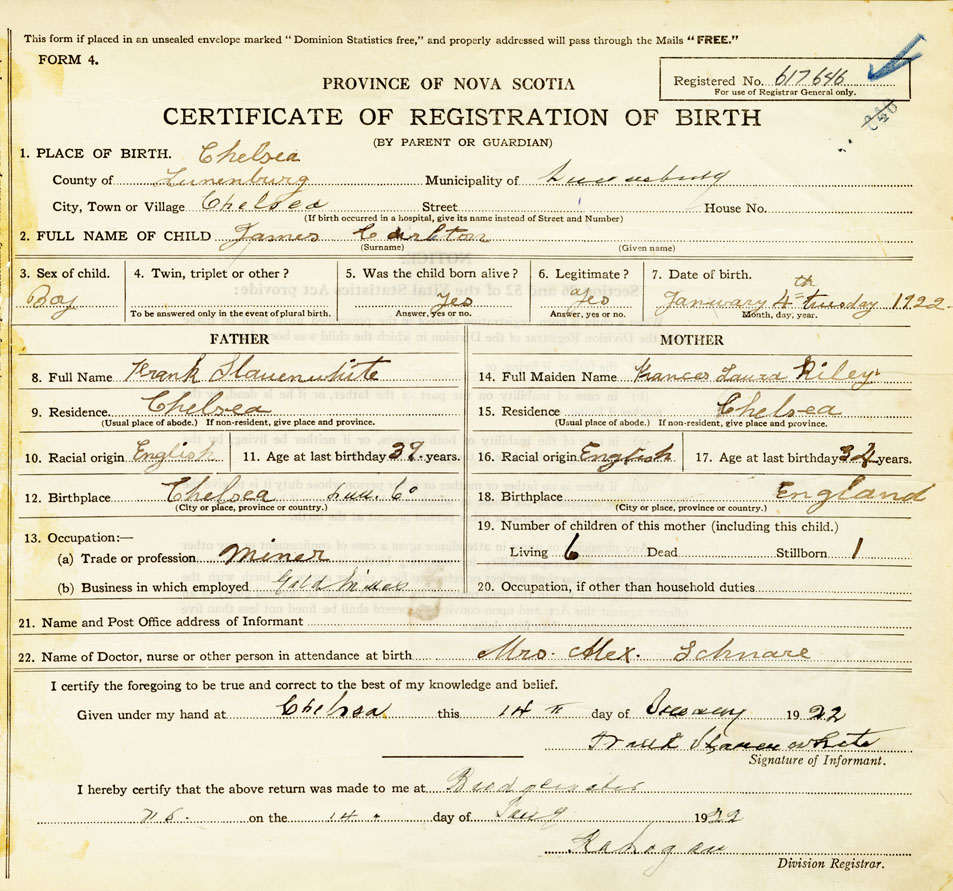 This form if placed in an unsealed envelope marked "Dominion Statistics free," and properly addressed will pass through the Mails "FREE."
FORM 4.
Registered No. 617646
For use of Registrar General only.
PROVINCE OF NOVA SCOTIA
CERTIFICATE OF REGISTRATION OF BIRTH
(BY PARENT OR GUARDIAN)
1. PLACE OF BIRTH. Chelsea
County of Lunenburg Municipality of Lunenburg
City, Town or Village Chelsea Street House No.
(If birth occurred in a hospital, give its name instead of Street and Number)
2. FULL NAME OF CHILD James Carlton
(Surname) (Given name)
3. Sex of child. 4. Twin, triplet or other? 5. Was the child born alive? 6. Legitimate? 7. Date of birth.
Boy Yes Yes January 4th tuesday 1922.
To be answered only in the event of plural birth. Answer, yes or no. Answer, yes or no. Month, day, year.
FATHER MOTHER
8. Full Name Frank Slauenwhite 14. Full Maiden Name Frances Laura Riley
9. Residence. Chelsea 15. Residence Chelsea
(Usual place of abode.) If non-resident, give place and province. (Usual place of abode.) If non-resident, give place and province.
10. Racial origin English 11. Age at last birthday 39. years. 16. Racial origin English 17. Age at last birthday 34 years.
12. Birthplace Chelsea Lun. Co 18. Birthplace England
(City or place, province or country.) (City or place, province or country.)
19. Number of children of this mother (including this child.)
13. Occupation:—
(a) Trade or profession Miner Living 6 Dead Stillborn 1
(b) Business in which employed Gold Mines 20. Occupation, if other than household duties
21. Name and Post Office address of Informant
22. Name of Doctor, nurse or other person in attendance at birth Mrs. Alex. Schnare
I certify the foregoing to be true and correct to the best of my knowledge and belief.
Given under my hand at Chelsea this 14 day of 1922
Frank Slauenwhite
Signature of Informant.
I hereby certify that the above return was made to me at Bridgewater
N.S. on the 14. day of Jany 1922
Division Registrar.